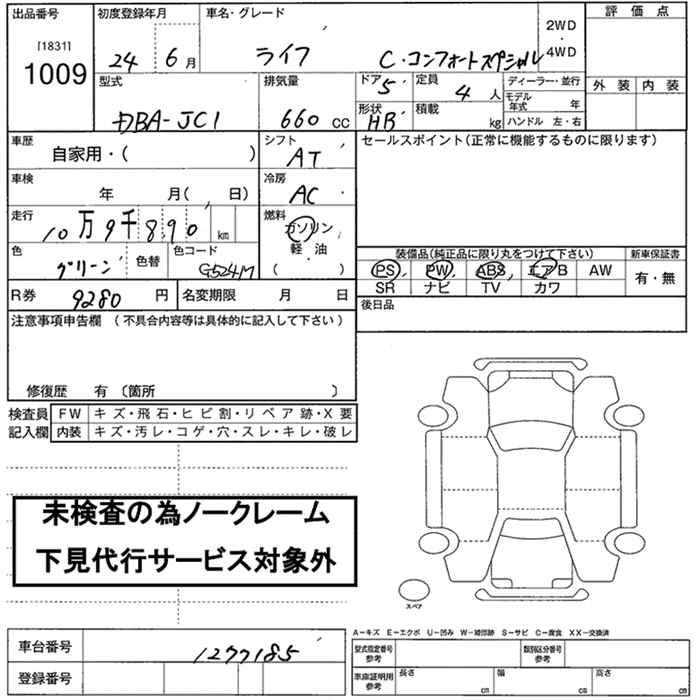 出品番号 初度登録年月 車名・グレード 評価点
[1831]
1009
24 6月 ライフ C・コンフォートスペシャル 2WD・4WD
外装 内装
型式 排気量 ドア 5 定員 4人 ディーラー・並行
モデル年式 年
DBA-JC1 660 CC 形状 HB 積載 kg ハンドル 左・右
車歴 自家用・( ) シフト AT セールスポイント(正常に機能するものに限ります)
車検 年 月( 日) 冷房 AC
走行 10万9千890 km 燃料 ガソリン 軽油 ( ・ )
色 グリーン 色替 色コード G524M
装備品(純正品に限り丸をつけて下さい) 新車保証書
PS PW ABS エアB AW 有・無
SR ナビ TV カワ
R券 9280円 名変期限 月 日 後日品
注意事項申告欄(不具合内容等は具体的に記入して下さい)
修復歴 有 〔箇所 〕
検査員 FW キズ・飛石・ヒビ割・リペア跡・X要
記入欄 内装 キズ・汚レ・コゲ・穴・スレ・キレ・破レ
未検査の為ノークレーム
下見代行サービス対象外
スペア
A-キズ E-エクボ U-凹み W-補修跡 S-サビ C-腐食 XX-交換済
車台番号 1277185 型式指定番号参考 類別区分番号参考
登録番号 車庫証明用参考 長さ cm 幅 cm 高さ cm